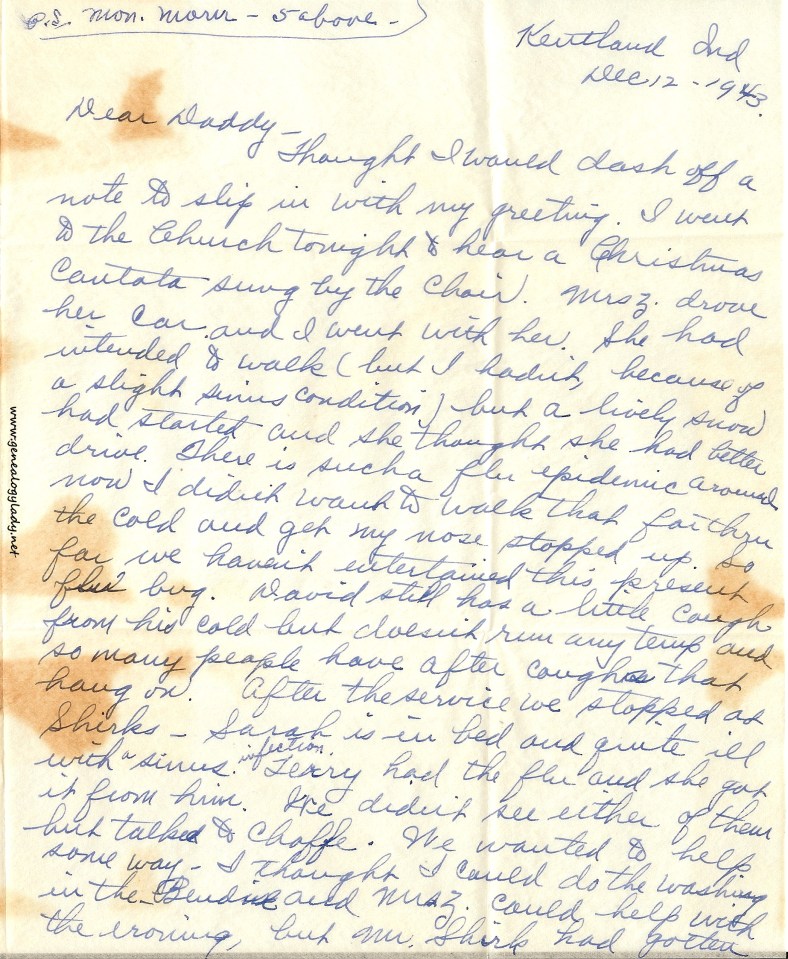 P.S. Mon. Morn - 5 above -
Kentland Ind
Dec 12 - 1943.
Dear Daddy -
Thought I would dash off a
note to slip in with my greeting. I went
to the Church tonight to hear a Christmas
Cantata sung by the Choir. Mrs Z. drove
her car and I went with her. She had
intended to walk (but I hadn't, because of
a slight sinus condition) but a lively snow
had started and she thought she had better
drive. There is such a flu epidemic around
now I didn't want to walk that far thru
the cold and get my nose stopped up. So
far we haven't entertained this present
flu bug. David still has a little cough
from his cold but doesn't run any temp and
so many people have after coughs that
hang on. After the service we stopped at
Shirks - Sarah is in bed and quite ill
with a sinus infection. Terry had the flu and she got
it from him. We didn't see either of them
but talked to Chaffe. We wanted to help
some way - I thought I could do the washing
in the Bendix and Mrs Z. could help with
the ironing, but Mr. Shirk had gotten
www.genealogylady.net